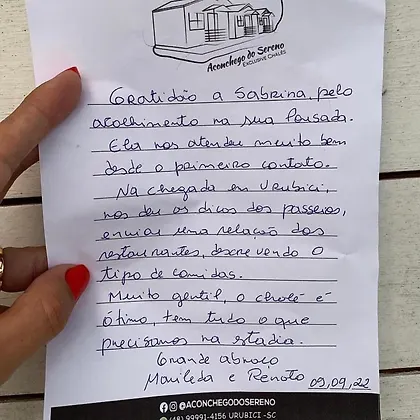 Aconchego do Sereno
EXCLUSIVE CHALÉS
Gratidão a Sabrina, pelo
acolhimento na sua Pousada.
Ela nos atendeu muito bem
desde o primeiro contato.
Na chegada em Urubici,
nos deu as dicas dos passeios,
enviou uma relação dos
restaurantes, descrevendo o
tipo de comidas.
Muito gentil, o chalé é
ótimo, tem tudo o que
precisamos na estadia.
Grande abraço
Marileda e Renato 09,09,22
@ACONCHEGODOSERENO
(48) 99991-4156 URUBICI - SC